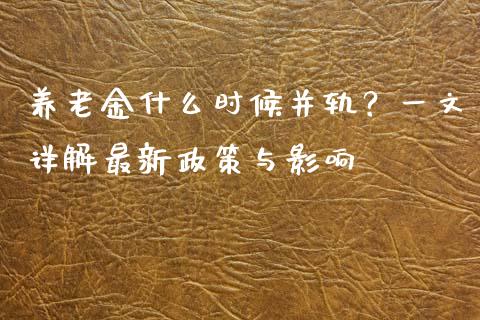 养老金什么时候并轨？一文
详解最新政策与影响